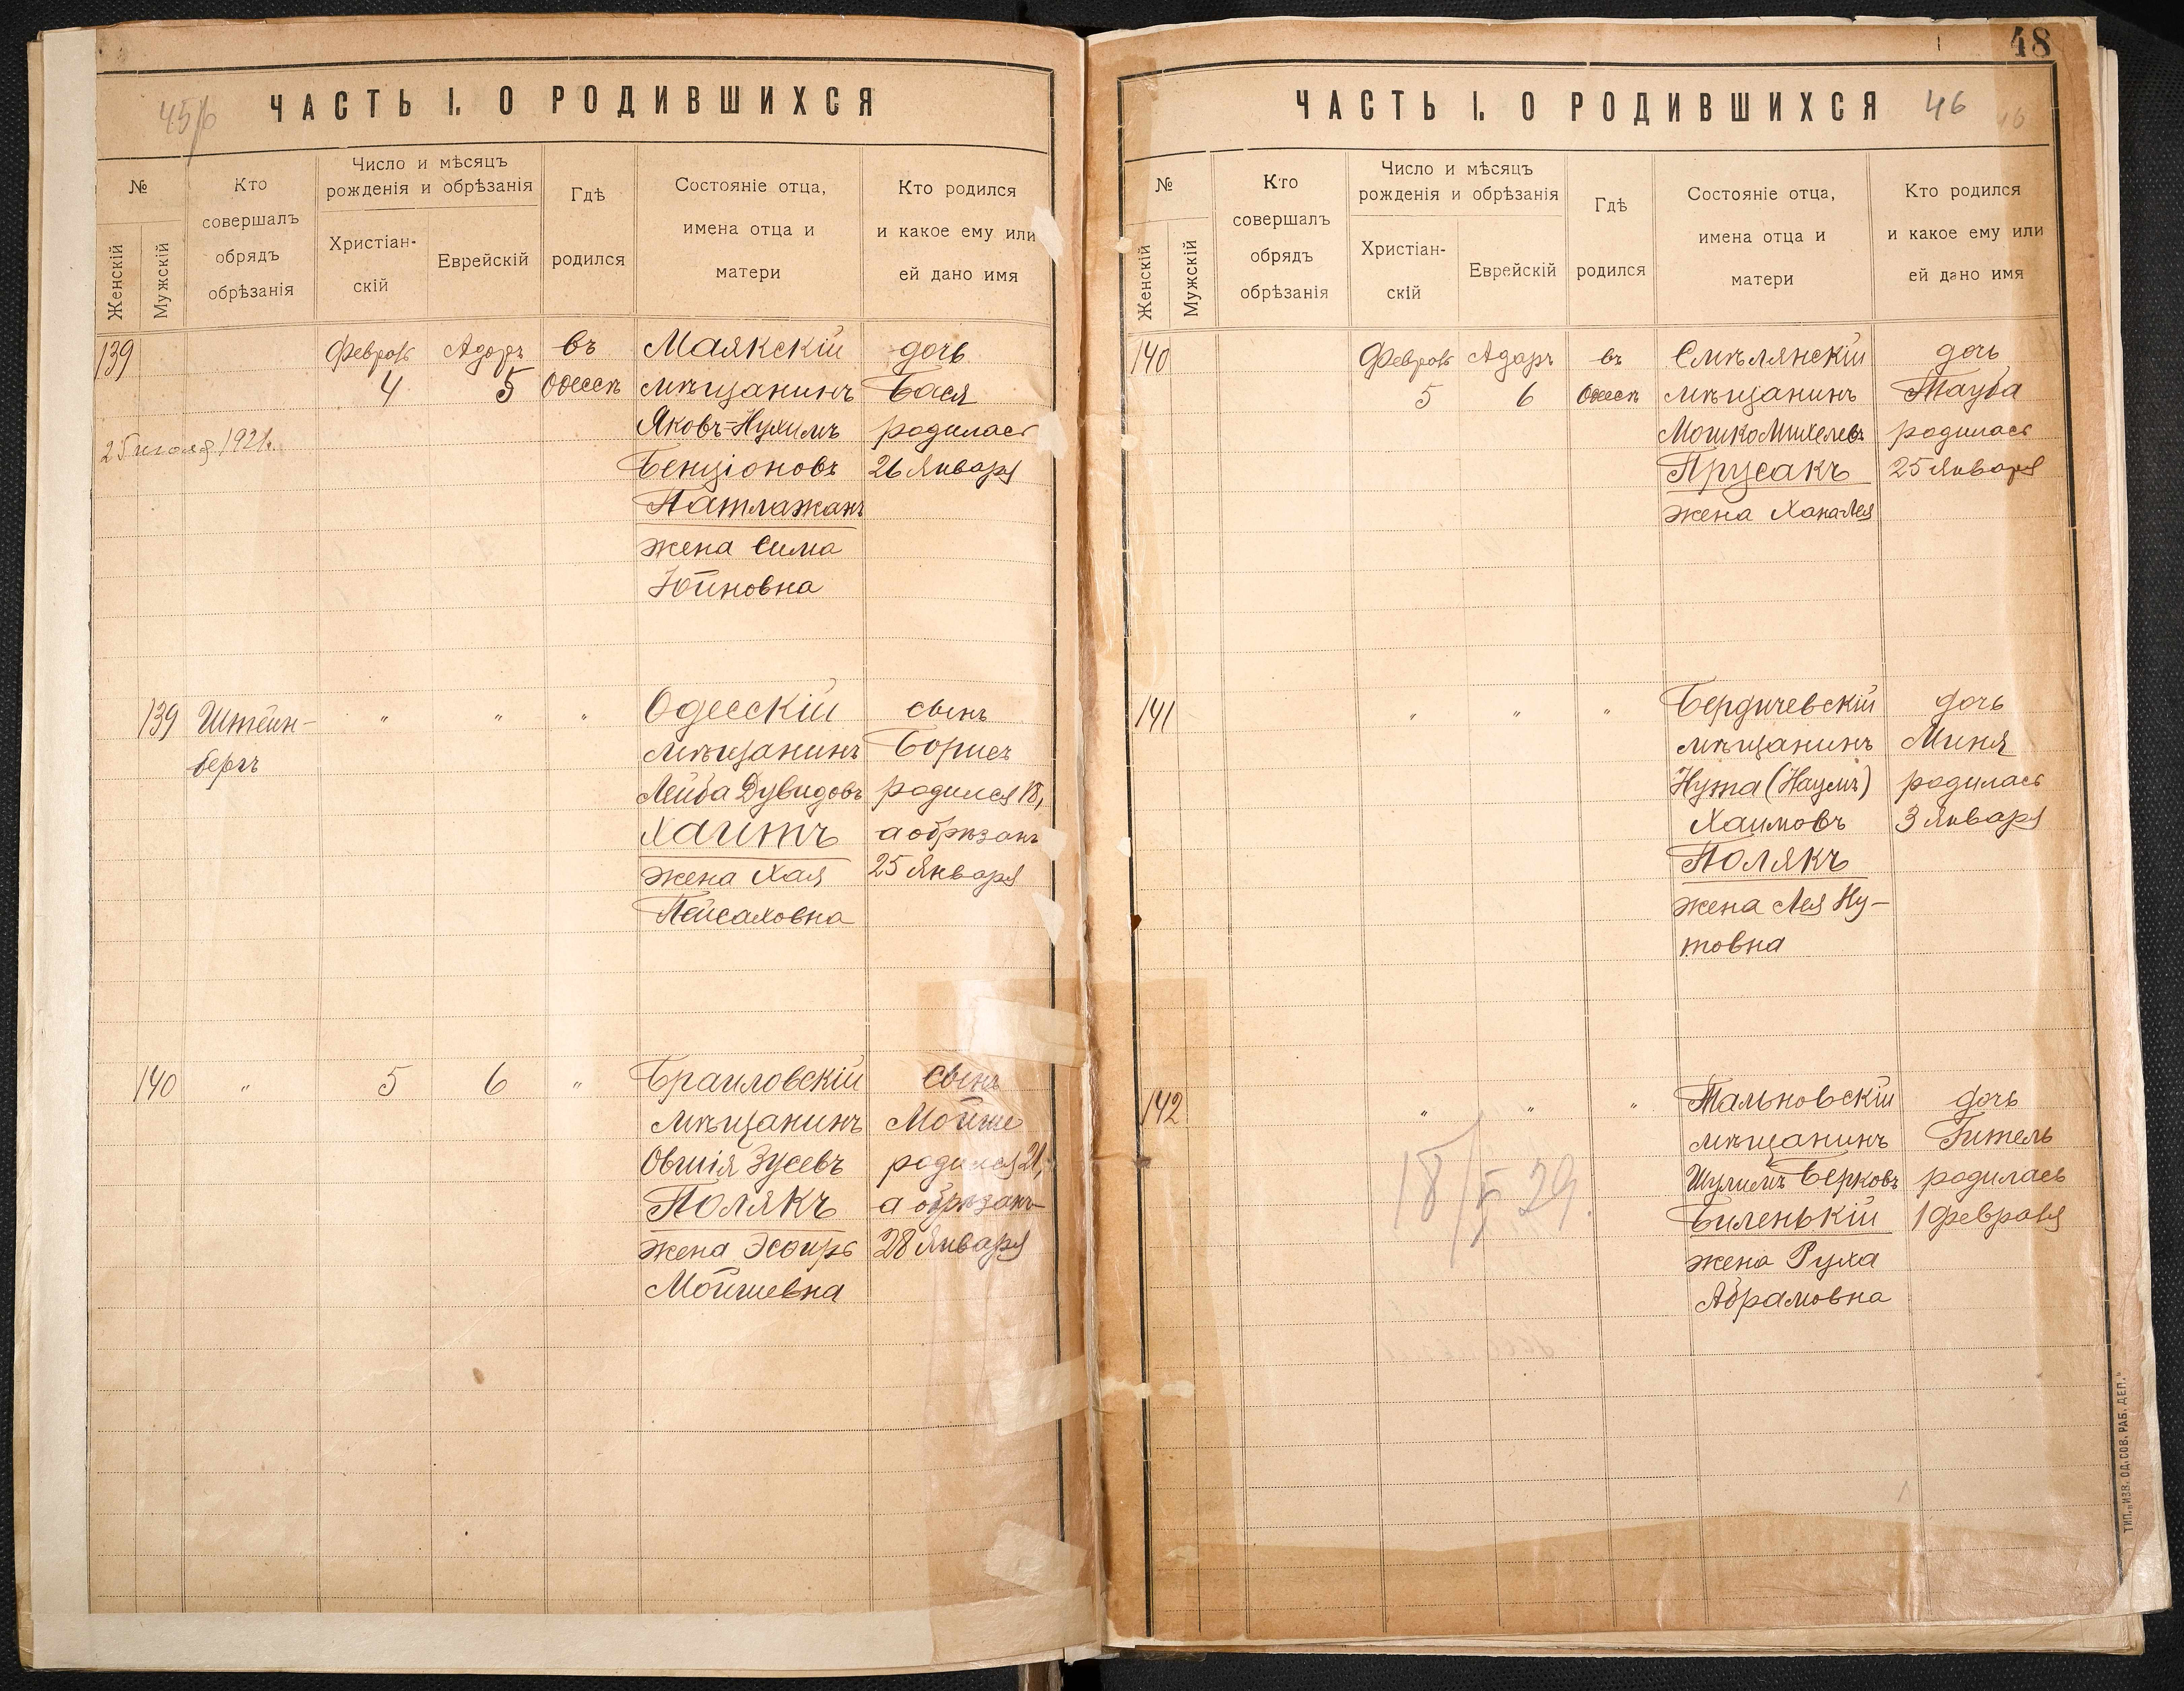 45/6
ЧАСТЬ I. О РОДИВШИХСЯ
№
Женскій
Мужскій
Кто
совершалъ
обрядъ
обрѣзанія
Число и мѣсяцъ
рожденія и обрѣзанія
Христіан-
скій
Еврейскій
Гдѣ
родился
Состояніе отца,
имена отца и
матери
Кто родился
и какое ему или
ей дано имя
139
Февраль
4
Адаръ
5
въ
Одессѣ
Маякскій
мѣщанинъ
Яковъ-Нухимъ
Бенціоновъ
Патлажанъ
жена Сима
Юйновна
дочь
Бася
родилась
26 Января
25 июля 1921г.
139
Штейн-
бергъ
"
"
"
Одесскій
мѣщанинъ
Лейба Дувидовъ
Хаитъ
жена Хая
Пейсаховна
сынъ
Борисъ
родился 18,
а обрѣзанъ
25 Января
140
"
5
6
"
Браиловскій
мѣщанинъ
Овшія Зусевъ
Полякъ
жена Эсѳирь
Мойшевна
сынъ
Мойше
родился 21,
а обрѣзанъ
28 Января
48
ЧАСТЬ I. О РОДИВШИХСЯ 46
№
Женскій
Мужскій
Кто
совершалъ
обрядъ
обрѣзанія
Число и мѣсяцъ
рожденія и обрѣзанія
Христіан-
скій
Еврейскій
Гдѣ
родился
Состояніе отца,
имена отца и
матери
Кто родился
и какое ему или
ей дано имя
140
Февраль
5
Адаръ
6
въ
Одессѣ
Смѣлянскій
мѣщанинъ
Мошко Михелевъ
Прусакъ
жена Хана Лея
дочь
Тауба
родилась
25 Января
141
"
"
"
Бердичевскій
мѣщанинъ
Нута (Наумъ)
Хаимовъ
Полякъ
жена Лея Ну-
товна
дочь
Миня
родилась
3 Января
142
"
"
"
Тальновскій
мѣщанинъ
Шулимъ Берковъ
Биленькій
жена Руха
Абрамовна
дочь
Гитель
родилась
1 Февраля
ТИП. „ИЗВ. ОД. СОВ. РАБ. ДЕП."